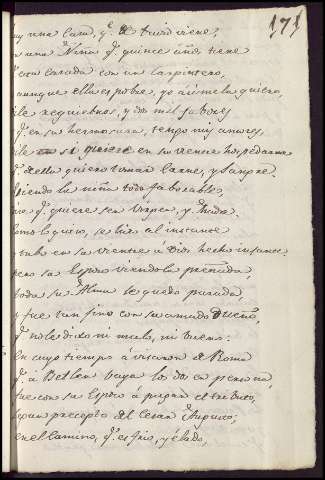 171
ay una Casa, qe. de David viene,
una Niña qe. quince años tiene
esta casada con un Carpintero,
aunque ella es pobre, yo asi me la quiero,
dile requiebros, y dos mil sabores
qe. en su hermosura, tempo mis amores,
dile si quiere en su vientre hospedarme
qe. della quiero tomar Carne, y sangre.
siendo la niña toda favorable,
qe. quiere ser Virgen, y Madre.
como lo quiso, se hizo al instante
tubo en su vientre á Dios hecho infante.
pero su Esposo viendola preñada,
toda su Alma se quedo parada,
y fue tan fino con su amado Dueño,
qe. no le dixo ni malo, ni bueno:
en cuyo tiempo á vissaron de Roma
qe. á Betlen vaya los dos en persona,
fue con su Esposo á pagar el tributo,
segun precepto del Cesar Augusto;
en el Camino, qe. es frio, y elado,